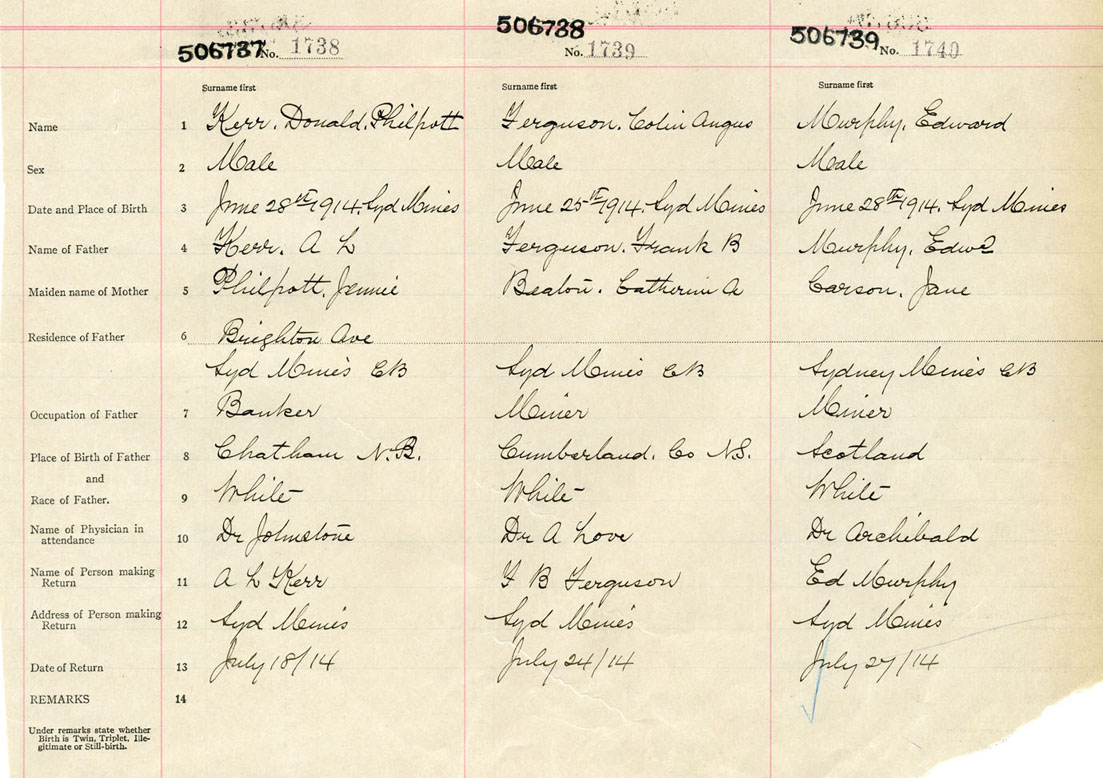 506737 No. 1738 506738 No. 1739 506739 No. 1740
Surname first Surname first Surname first
Name 1 Kerr. Donald. Philpott Ferguson. Colin Angus Murphy, Edward
Sex 2 Male Male Male
Date and Place of Birth 3 June 28th 1914. Syd Mines June 25th 1914. Syd Mines June 28th 1914. Syd Mines
Name of Father 4 Kerr. A L Ferguson. Frank B Murphy, Edwd
Maiden name of Mother 5 Philpott. Jennie Beaton. Catherine A Carson, Jane
Residence of Father 6 Brighton Ave
Syd Mines CB Syd Mines CB Sydney Mines CB
Occupation of Father 7 Banker Miner Miner
Place of Birth of Father 8 Chatham N.B. Cumberland. Co N.S. Scotland
and
Race of Father. 9 White White White
Name of Physician in
attendance 10 Dr Johnstone Dr A Love Dr Archibald
Name of Person making
Return 11 A L Kerr F B Ferguson Ed Murphy
Address of Person making
Return 12 Syd Mines Syd Mines Syd Mines
Date of Return 13 July 18/14 July 24/14 July 27/14
REMARKS 14
Under remarks state whether
Birth is Twin, Triplet, Ille-
gitimate or Still-birth.